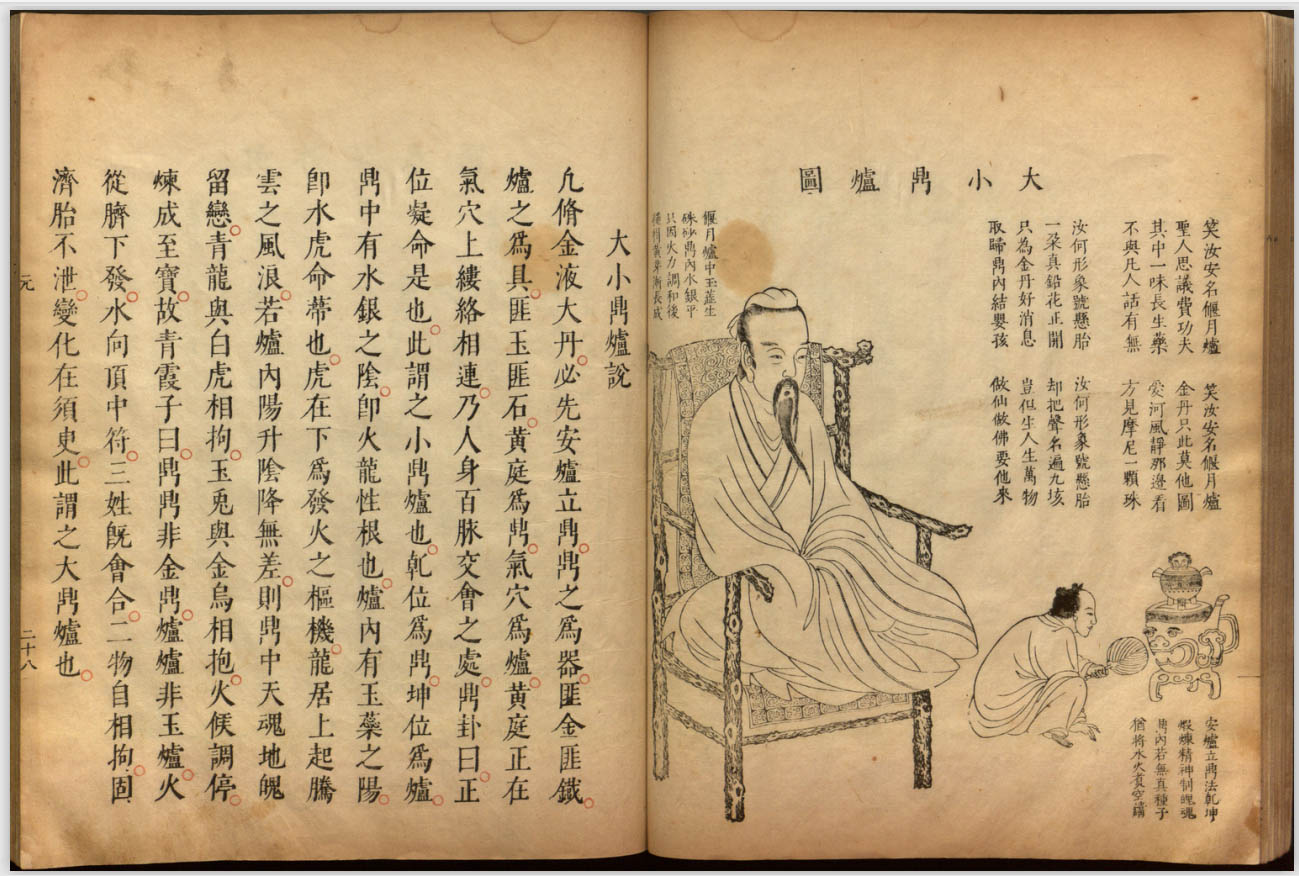 大小鼎爐圖
笑汝安名偃月爐
聖人思議費功夫
其中一味長生藥
不與凡人話有無
笑汝安名偃月爐
金丹只此莫他圖
愛河風靜那邊看
方見摩尼一顆珠
汝何形象號懸胎
一朶真鉛花正開
只為金丹好消息
取歸鼎內結嬰孩
汝何形象號懸胎
却把聲名遍九垓
豈但生人生萬物
做仙做佛要他來
偃月爐中玉蕋生
硃砂鼎內水銀平
只因火力調和後
種得黃芽漸長成
安爐立鼎法乾坤
煅煉精神制魄魂
鼎內若無真種子
猶將水火煑空鐺
大小鼎爐說
凡脩金液大丹必先安爐立鼎鼎之爲器匪金匪鐵
爐之爲具匪玉匪石黃庭爲鼎氣穴爲爐黃庭正在
氣穴上縷絡相連乃人身百脉交會之處鼎卦曰正
位凝命是也此謂之小鼎爐也乹位爲鼎坤位爲爐
鼎中有水銀之陰卽火龍性根也爐內有玉蘂之陽
卽水虎命蔕也虎在下爲發火之樞機龍居上起騰
雲之風浪若爐內陽升陰降無差則鼎中天魂地魄
留戀青龍與白虎相拘玉兎與金烏相抱火候調停
煉成至寶故青霞子曰鼎鼎非金鼎爐爐非玉爐火
從臍下發水向頂中符三姓旣會合二物自相拘固
濟胎不泄變化在須臾此謂之大鼎爐也
元
二十八